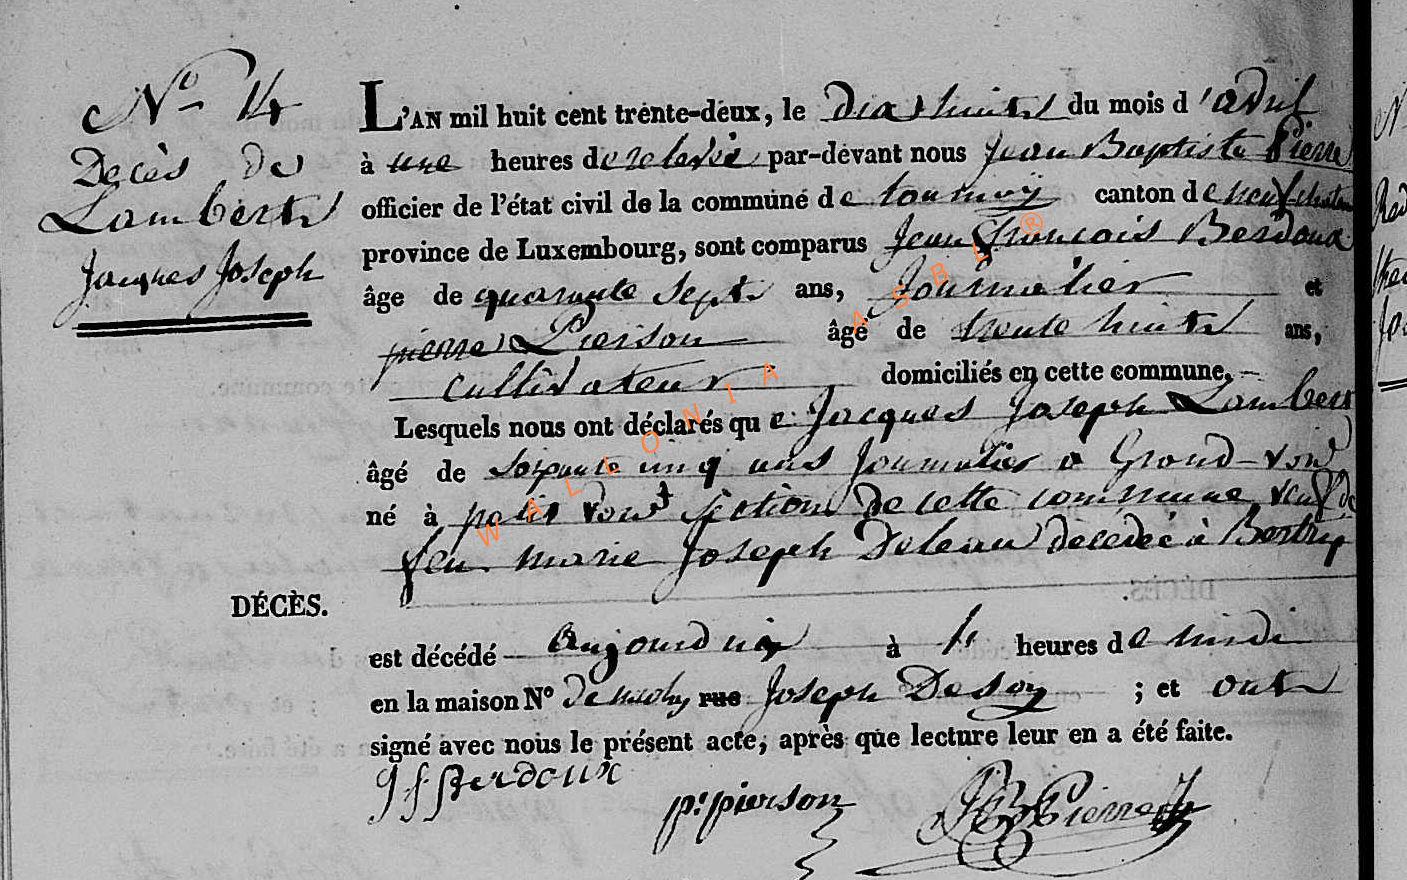 No 14
Decès de
Lambert
Jacques Joseph
L'AN mil huit cent trente-deux, le dix huit du mois d'avril
à une heures de relevée par-devant nous Jean Baptiste Pierre
officier de l'état civil de la commune de tournay canton de neufchateau
province de Luxembourg, sont comparus Jean François Berdoux
âge de quarante sept ans, Journalier et
pierre Pierson âgé de trente huit ans,
cultivateur domiciliés en cette commune,
Lesquels nous ont déclarés que Jacques Joseph Lambert
âgé de soixante cinq ans Journalier a Grand-voir
né à petit voir section de cette commune veuf de
feu marie Joseph Deleau décédée à Bertrix
DÉCÈS.
est décédé aujourd'huy à heures de midi
en la maison No de rue Joseph Desoy ; et ont
signé avec nous le présent acte, après que lecture leur en a été faite.
J f Berdoux
pr pierson
JB Pierre
WALLONIA ASBL ®